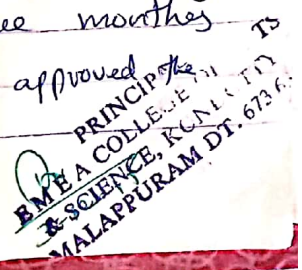 months
approved the
TS
PRINCIP
EMEA COLLE
& SCIENCE, KON
MALAPPURAM DT. 6736